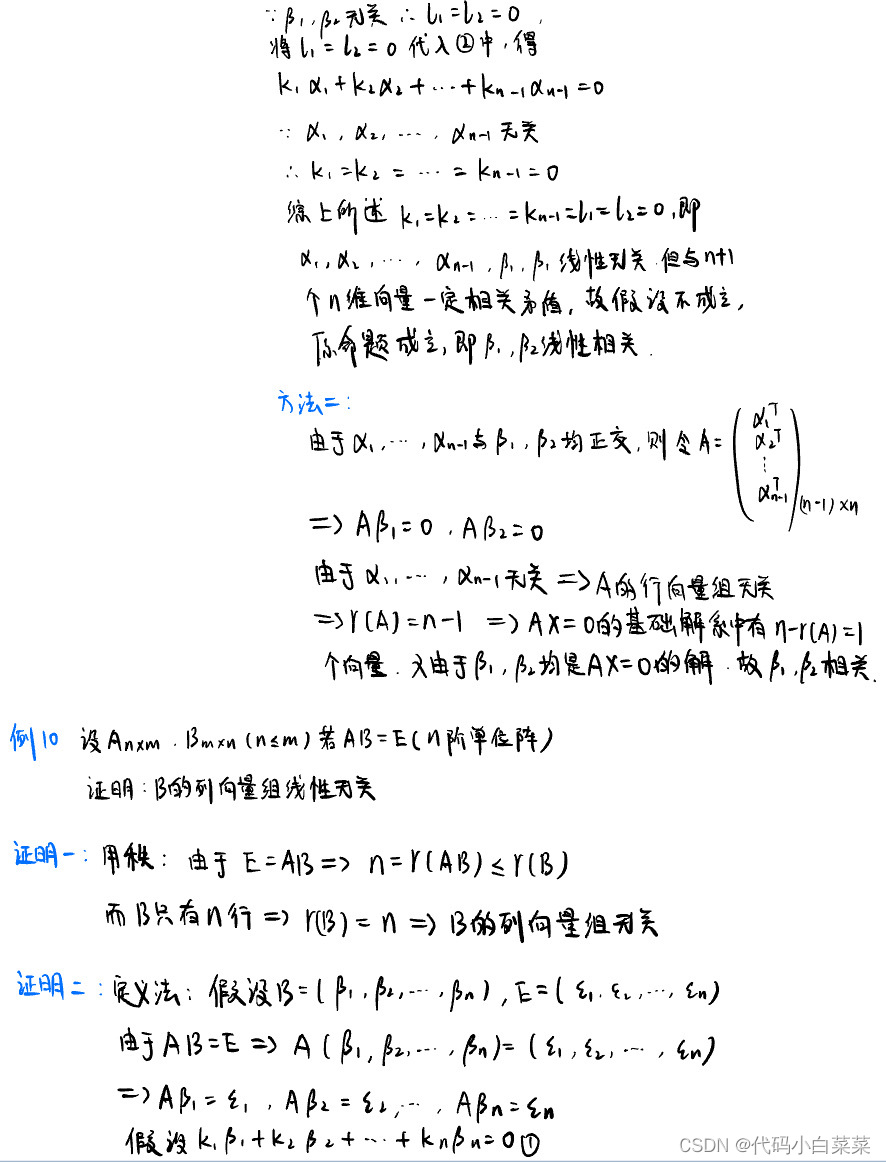 ∵ β₁, β₂ 无关 ∴ l₁=l₂=0,
将 l₁=l₂=0 代入②中,得
k₁α₁+k₂α₂+⋯+kₙ₋₁αₙ₋₁=0
∵ α₁, α₂, ⋯, αₙ₋₁ 无关
∴ k₁=k₂=⋯=kₙ₋₁=0
综上所述 k₁=k₂=⋯=kₙ₋₁=l₁=l₂=0,即
α₁, α₂, ⋯, αₙ₋₁, β₁, β₁ 线性无关.但与n+1
个n维向量一定相关矛盾,故假设不成立,
原命题成立,即 β₁, β₂线性相关.
方法二:
由于 α₁, ⋯, αₙ₋₁与 β₁, β₂ 均正交,则令 A= (α₁ᵀ α₂ᵀ ⋮ αₙ₋₁ᵀ)(n-1)×n
=> Aβ₁=0, Aβ₂=0
由于 α₁, ⋯, αₙ₋₁ 无关 => A的行向量组无关
=> r(A)=n-1 => AX=0的基础解系中有 n-r(A)=1
个向量.又由于 β₁, β₂均是AX=0的解.故 β₁, β₂ 相关.
例10 设Aₙₓₘ. Bₘₓₙ (n≤m) 若 AB=E(n阶单位阵)
证明:B的列向量组线性无关
证明一: 用秩: 由于 E=AB => n=r(AB)≤r(B)
而B只有n行 => r(B)=n => B的列向量组无关
证明二: 定义法: 假设B=(β₁, β₂, ⋯, βₙ), E=(ε₁, ε₂, ⋯, εₙ)
由于AB=E => A(β₁, β₂, ⋯, βₙ)=(ε₁, ε₂, ⋯, εₙ)
=> Aβ₁=ε₁, Aβ₂=ε₂, ⋯, Aβₙ=εₙ
假设 k₁β₁+k₂β₂+⋯+kₙβₙ=0 ①
CSDN @代码小白菜菜